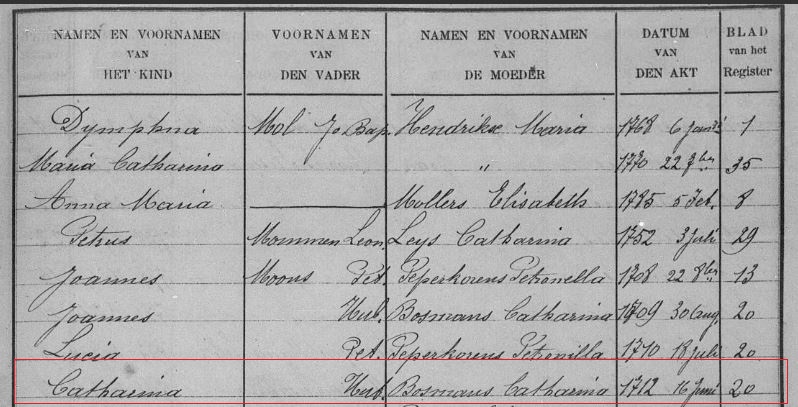 NAMEN EN VOORNAMEN VAN HET KIND | VOORNAMEN VAN DEN VADER | NAMEN EN VOORNAMEN VAN DE MOEDER | DATUM VAN DEN AKT | BLAD van het Register
Dymphna Mol Jo Bap. Hendrikx Maria 1768 6 1
Maria Catharina " 1770 22 7ber 35
Anna Maria Mollers Elisabeth 1785 5 Feb. 8
Petrus Mommen Leon Leys Catharina 1752 3 Juli 29
Joannes Moons Pet. Peperkorens Petronella 1708 22 8ber 13
Joannes Hub. Bosmans Catharina 1709 30 Aug. 20
Lucia Pet. Peperkorens Petronilla 1710 18 Juli 20
Catharina Hub. Bosmans Catharina 1712 16 Juni 20